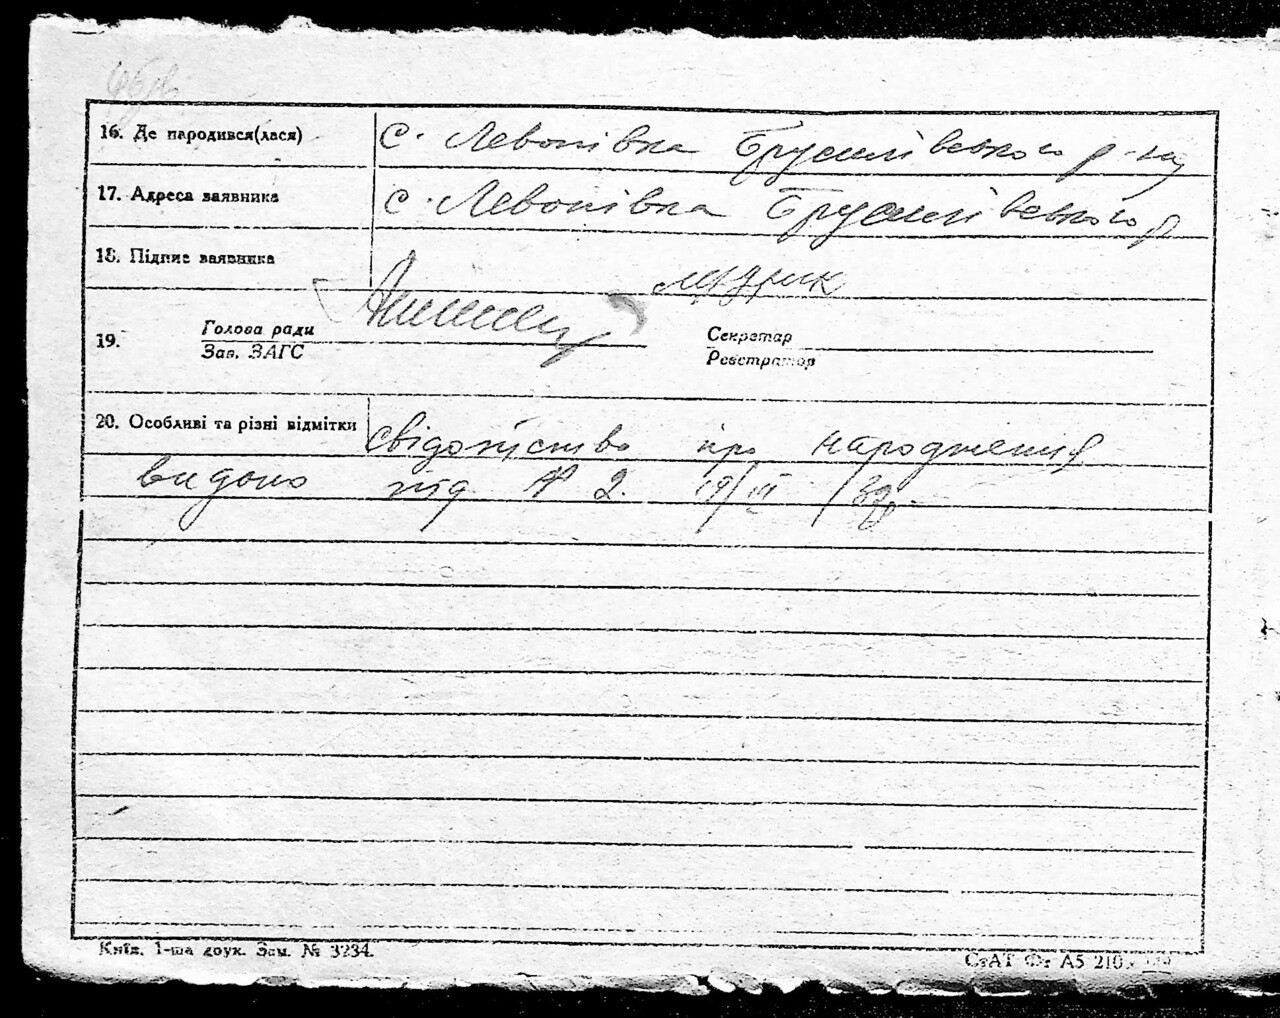 16. Де народився(лася) с. Левонівка Брусилівського р-ну
17. Адреса заявника с. Левонівка Брусилівського р
18. Підпис заявника
19. Голова ради Секретар
Зав. ЗАГС Реєстратор
20. Особливі та різні відмітки свідоцтво про народження
видано під № 2. 19/III
Київ, 1-ша друк. Зам. № 3234.
СтАТ Фт А5 210 ×